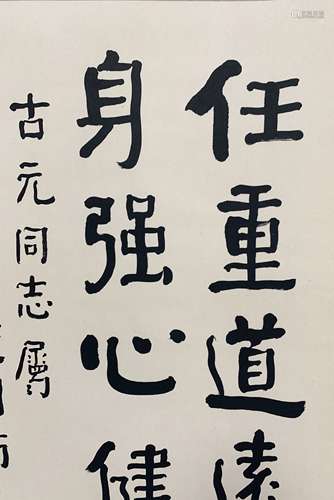 任重道遠
身强心健
古元同志屬